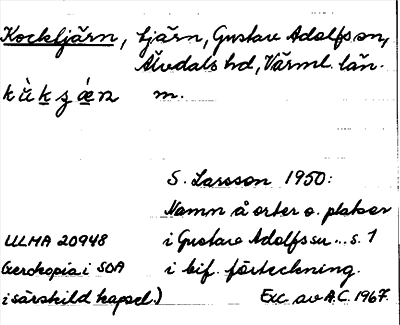 Kocktjärn, tjärn, Gustav Adolfs sn,
Älvdals hd, Värml. län.
kùkʒǽn m.
S. Larsson 1950:
Namn å orter o. platser
ULMA 20948 i Gustav Adolfs sn... s. 1
(xerokopia i SOA i bif. förteckning.
i särskild kapsel.) Exc. av A.C. 1967.